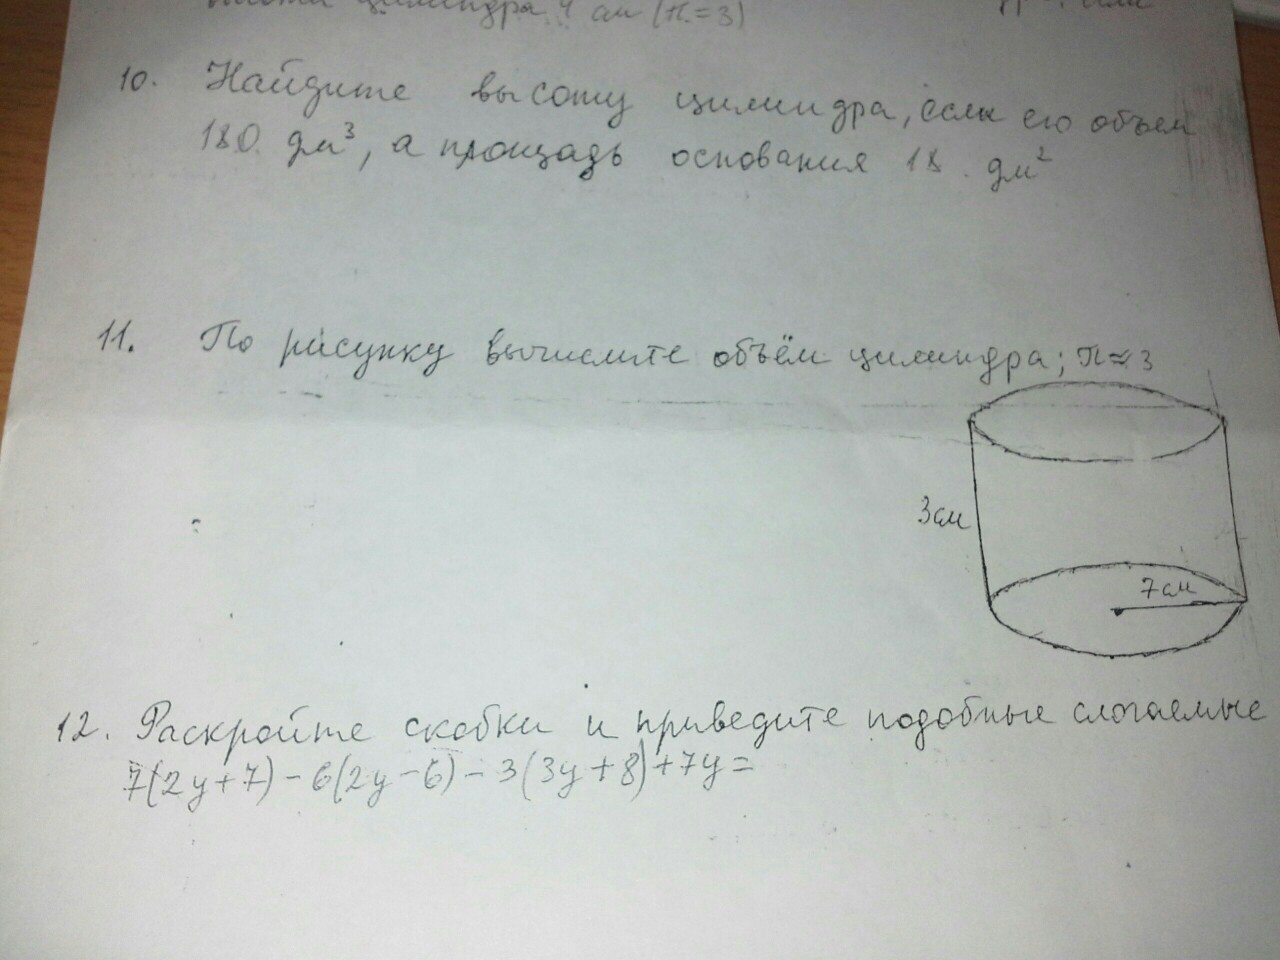 цилиндра 4 см (π=3)
10. Найдите высоту цилиндра, если его объем
180 дм³, а площадь основания 18 дм²
11. По рисунку вычислите объём цилиндра; π≈3
3см
7см
12. Раскройте скобки и приведите подобные слогаемые
7(2y+7)-6(2y-6)-3(3y+8)+7y=